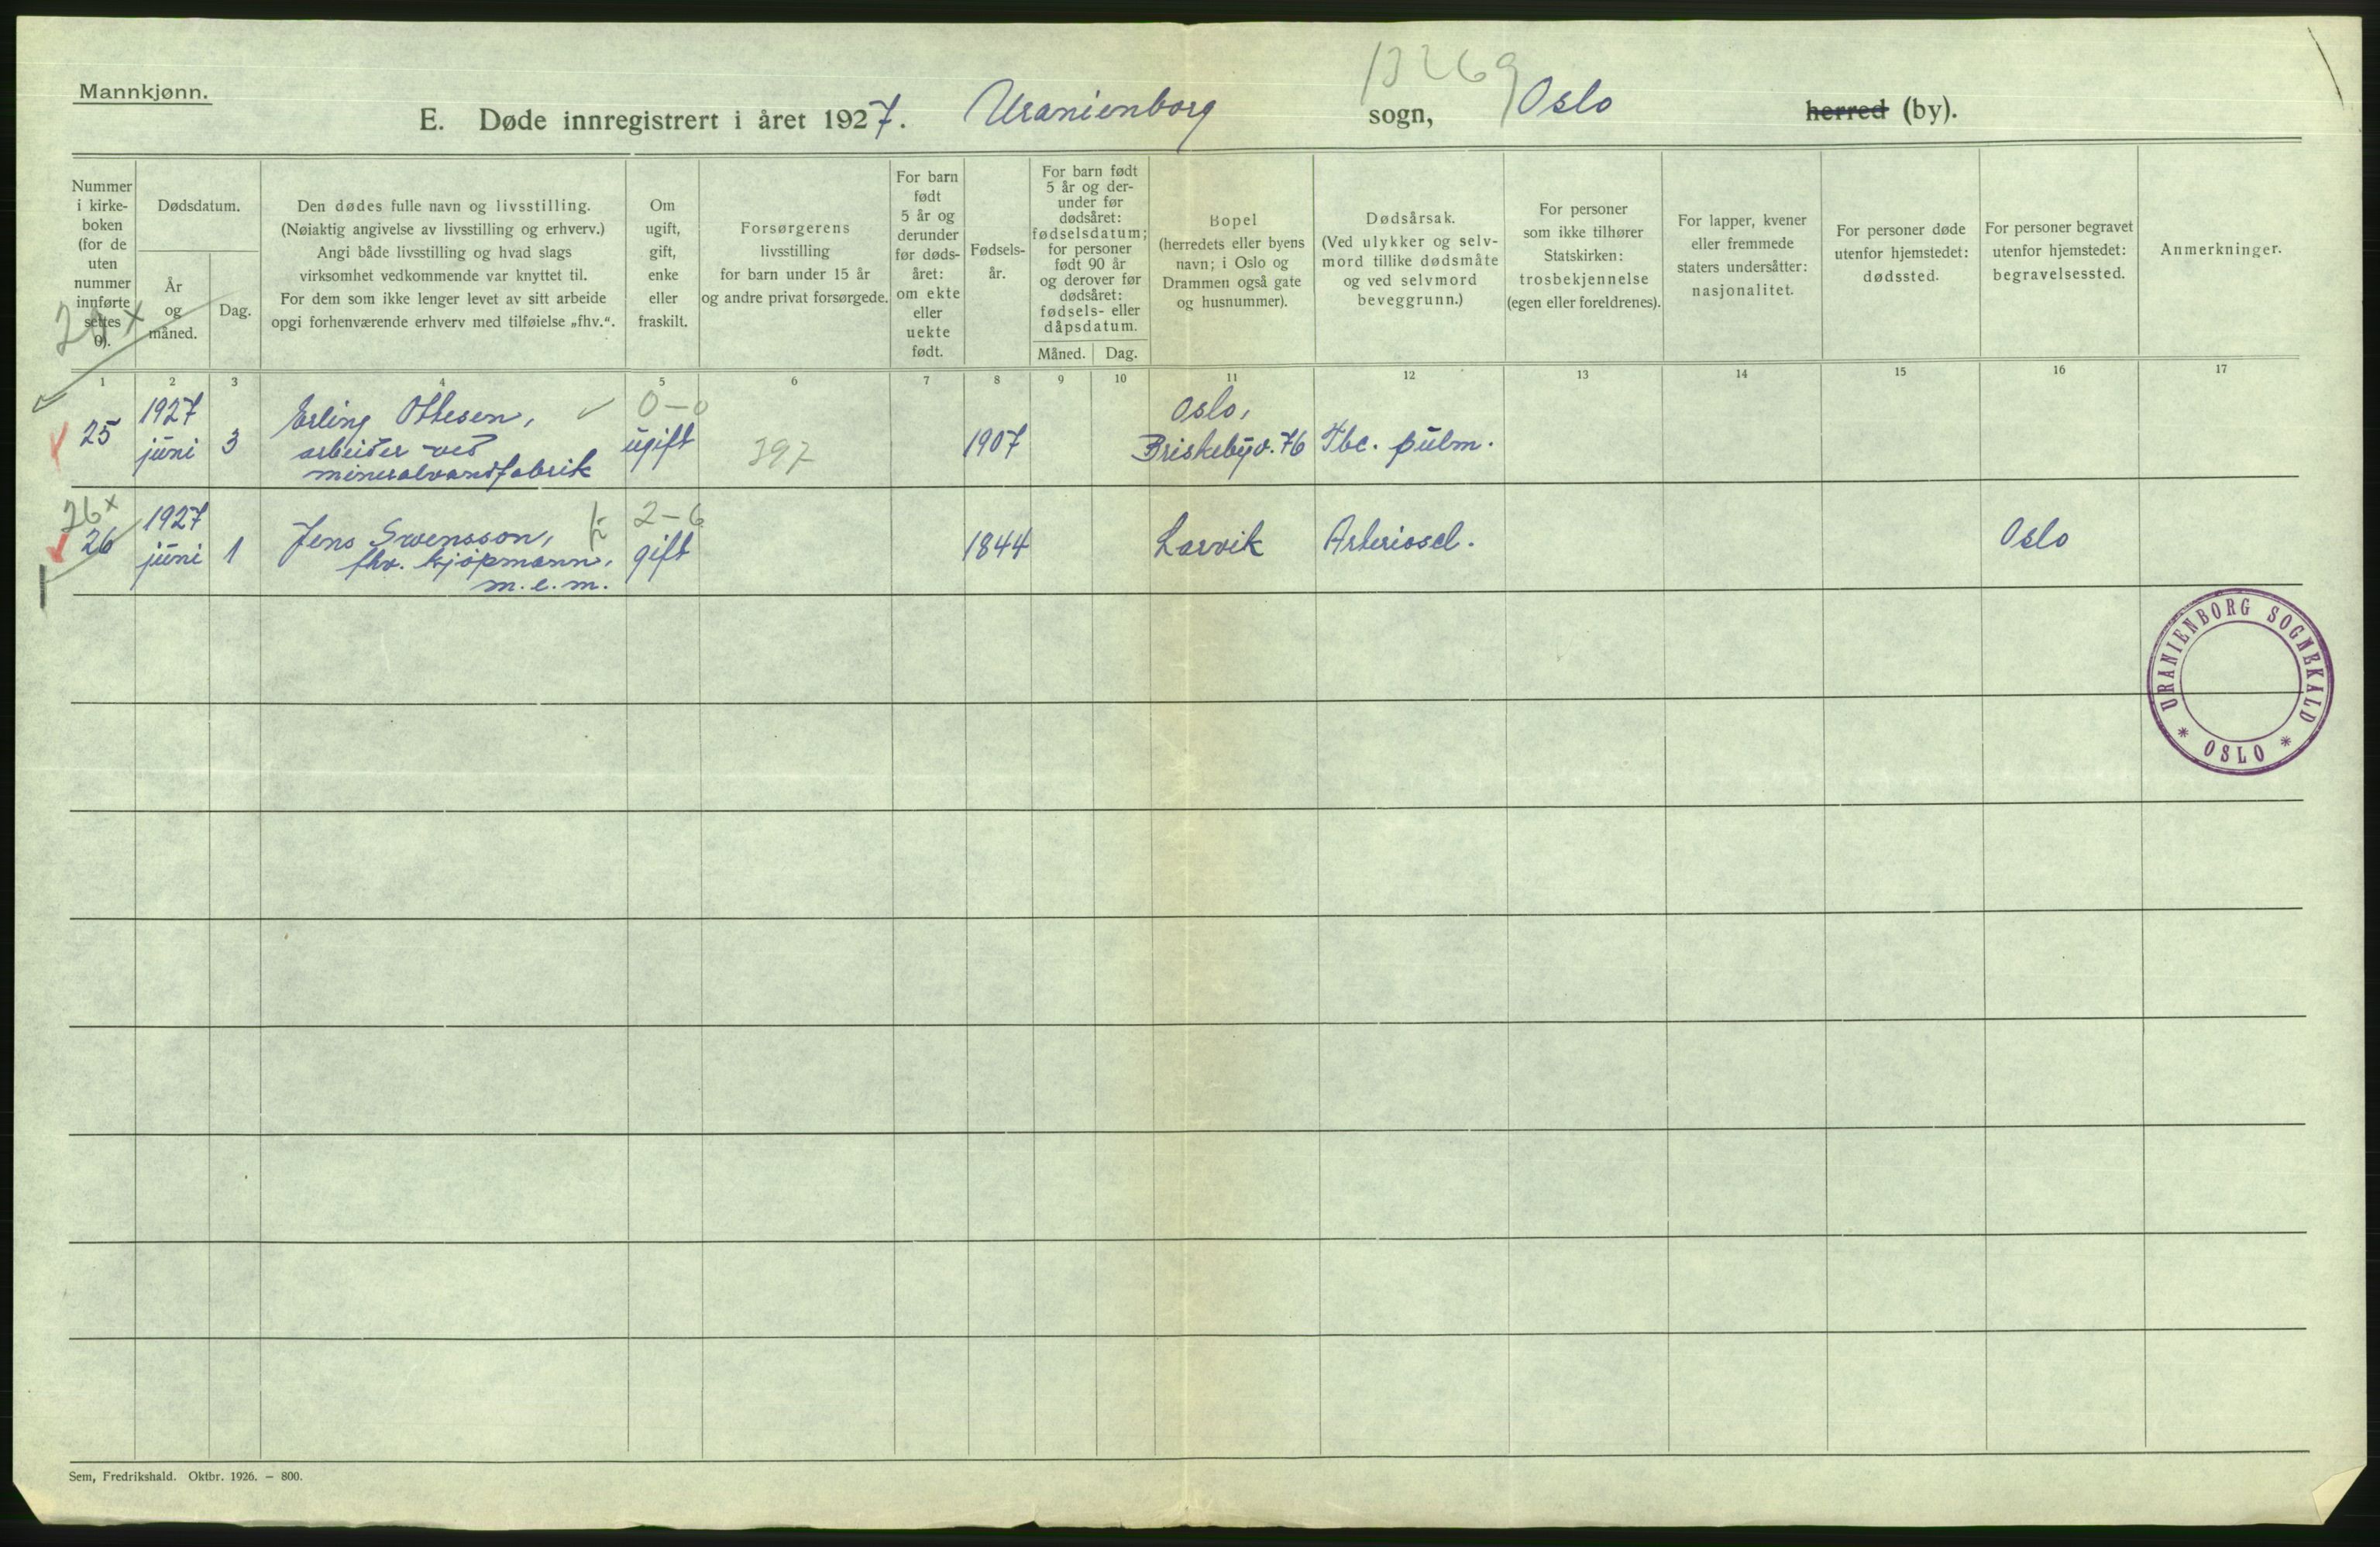 Mannkjønn.
13269
E. Døde innregistrert i året 1927. Uranienborg sogn, Oslo herred (by).
Nummer
i kirke-
boken
(for de
uten
nummer
innførte
settes
0).
Dødsdatum.
År
og
måned.
Dag.
Den dødes fulle navn og livsstilling.
(Nøiaktig angivelse av livsstilling og erhverv.)
Angi både livsstilling og hvad slags
virksomhet vedkommende var knyttet til.
For dem som ikke lenger levet av sitt arbeide
opgi forhenværende erhverv med tilføielse „fhv.“.
Om
ugift,
gift,
enke
eller
fraskilt.
Forsørgerens
livsstilling
for barn under 15 år
og andre privat forsørgede.
For barn
født
5 år og
derunder
før døds-
året:
om ekte
eller
uekte
født.
Fødsels-
år.
For barn født
5 år og der-
under før
dødsåret:
fødselsdatum;
for personer
født 90 år
og derover før
dødsåret:
fødsels- eller
dåpsdatum.
Måned. Dag.
Bopel
(herredets eller byens
navn; i Oslo og
Drammen også gate
og husnummer).
Dødsårsak.
(Ved ulykker og selv-
mord tillike dødsmåte
og ved selvmord
beveggrunn.)
For personer
som ikke tilhører
Statskirken:
trosbekjennelse
(egen eller foreldrenes).
For lapper, kvener
eller fremmede
staters undersåtter:
nasjonalitet.
For personer døde
utenfor hjemstedet:
dødssted.
For personer begravet
utenfor hjemstedet:
begravelsessted.
Anmerkninger.
1 2 3 4 5 6 7 8 9 10 11 12 13 14 15 16 17
25
1927
juni
3
Erling Ottesen,
arbeider ved
mineralvandfabrik
0-0
ugift
397
1907
Oslo,
Briskebyv. 76
Tbc. pulm.
26x
26
1927
juni
1
Jens Swensson,
fhv. kjøpmann,
m.e.m.
2-6
gift
1844
Larvik
Arterioscl.
Oslo
URANIENBORG SOGNEKALD
* OSLO *
Sem, Fredrikshald. Oktbr. 1926. — 800.